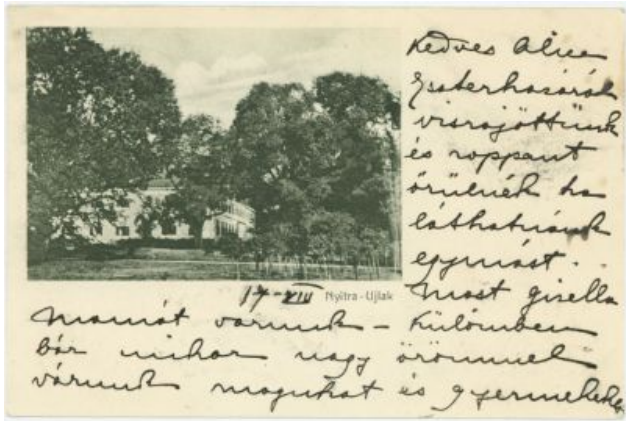 Kedves Alice
Eszterházáról
visszajöttünk
és roppant
örülnék ha
láthatnánk
egymást.
17-XIII Nyitra-Ujlak
Most Gisella
Mamát varunk – különben
bár mikor nagy örömmel
várunk magukat és gyermeke